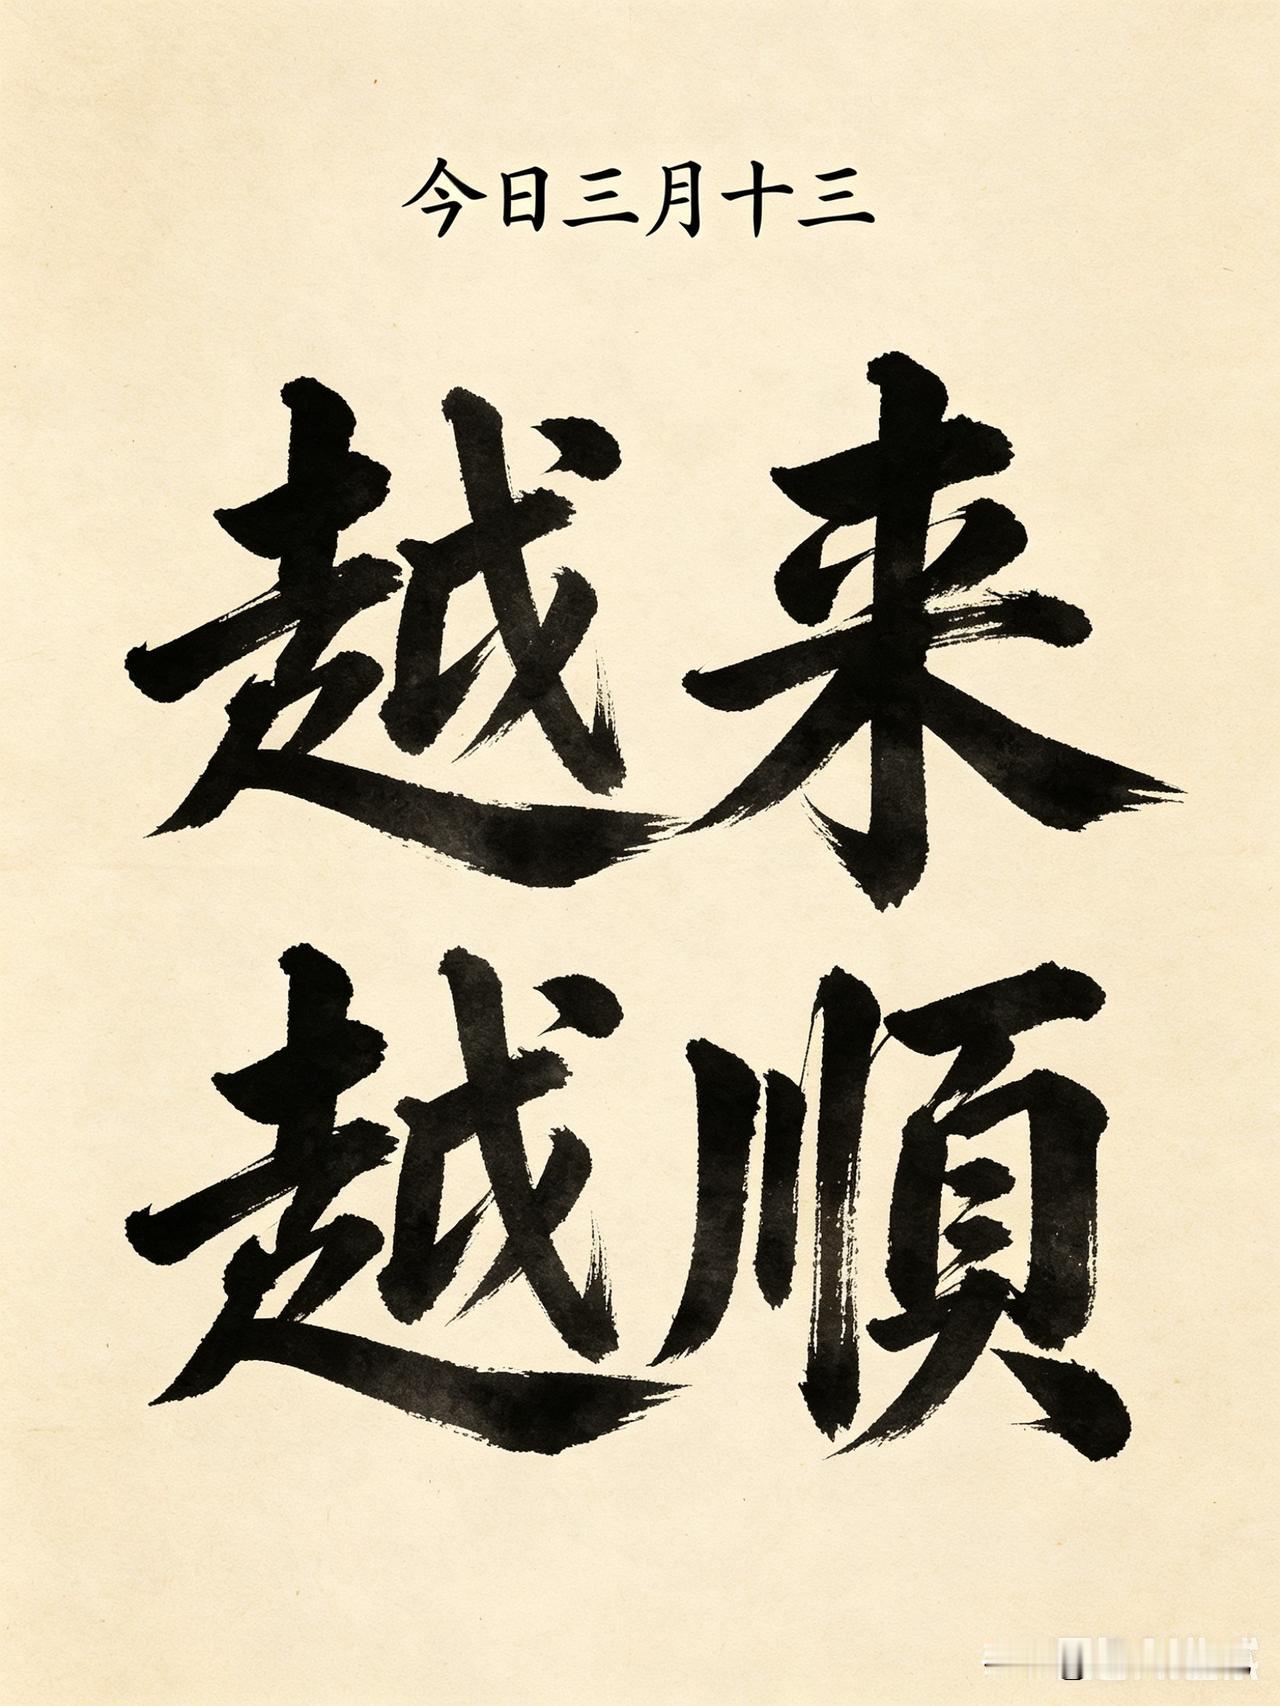 今日三月十三
越来
越順